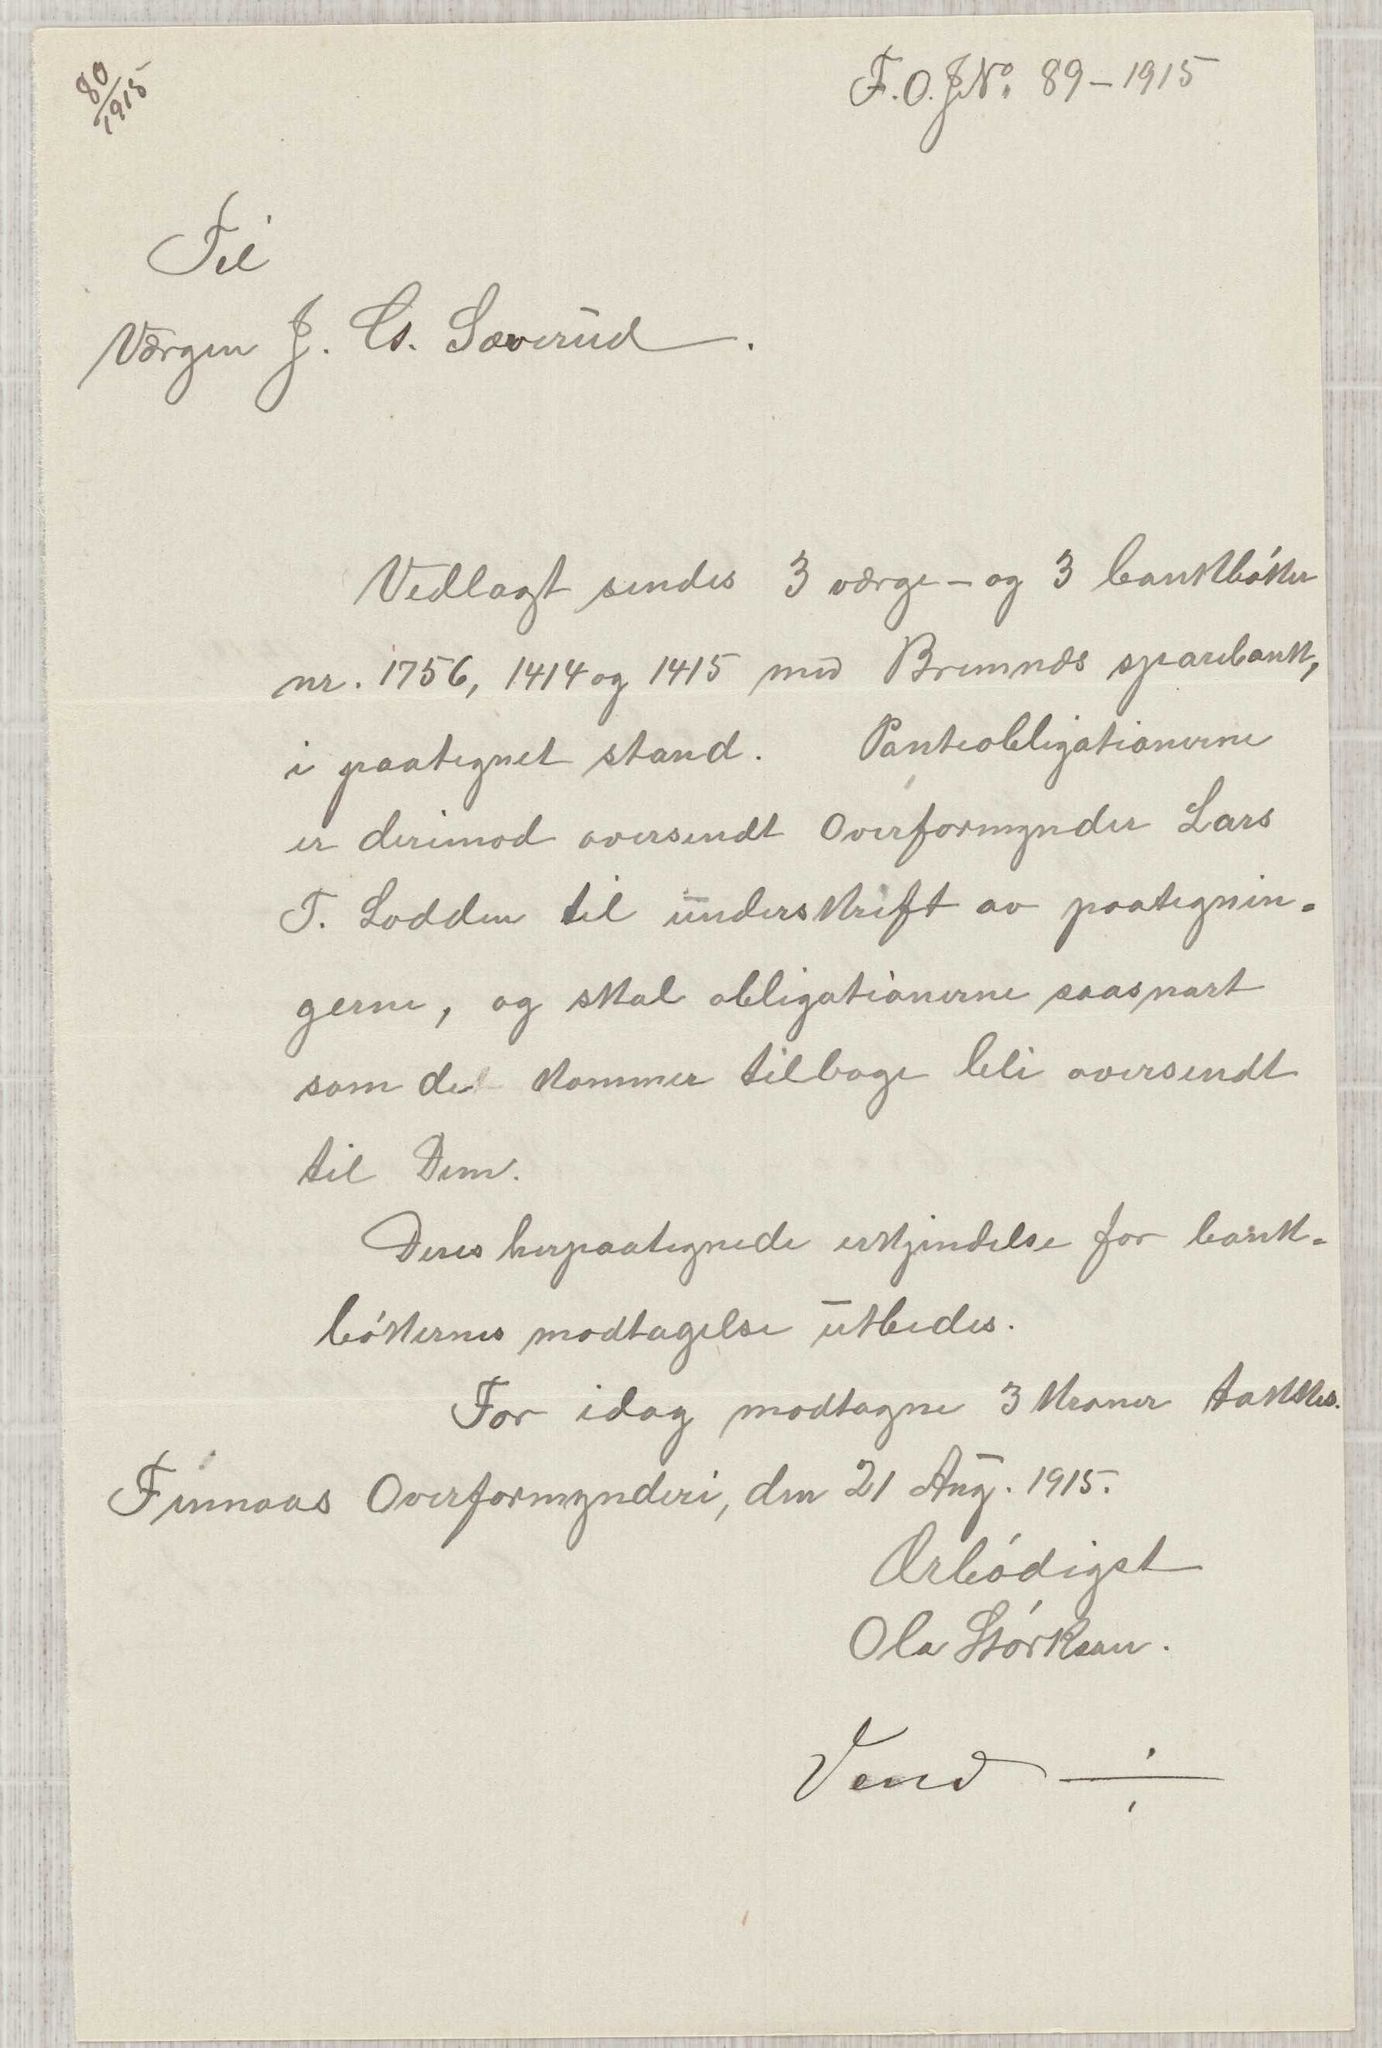 80
1915
F.O.J.No. 89-1915
Til
Værgen J. Cs. Sæverud.
Vedlagt sendes 3 værge- og 3 bankbóker
nr. 1756, 1414 og 1415 med Bremnæs sparebank,
i paategnet stand. Panteobligationerne
er derimod oversendt Overformynder Lars
T. Lodden til underskrift av paategnin-
gerne, og skal obligationerne saasnart
som de kommer tilbage bli oversendt
til Dem.
Deres herpaategnede erkjendelse for bank-
bókernes modtagelse utbedes.
For idag modtagne 3 kroner takkes.
Finnaas Overformynderi, den 21 Aug. 1915.
Ærbódigst
Ola Stórksen.
Vend ÷